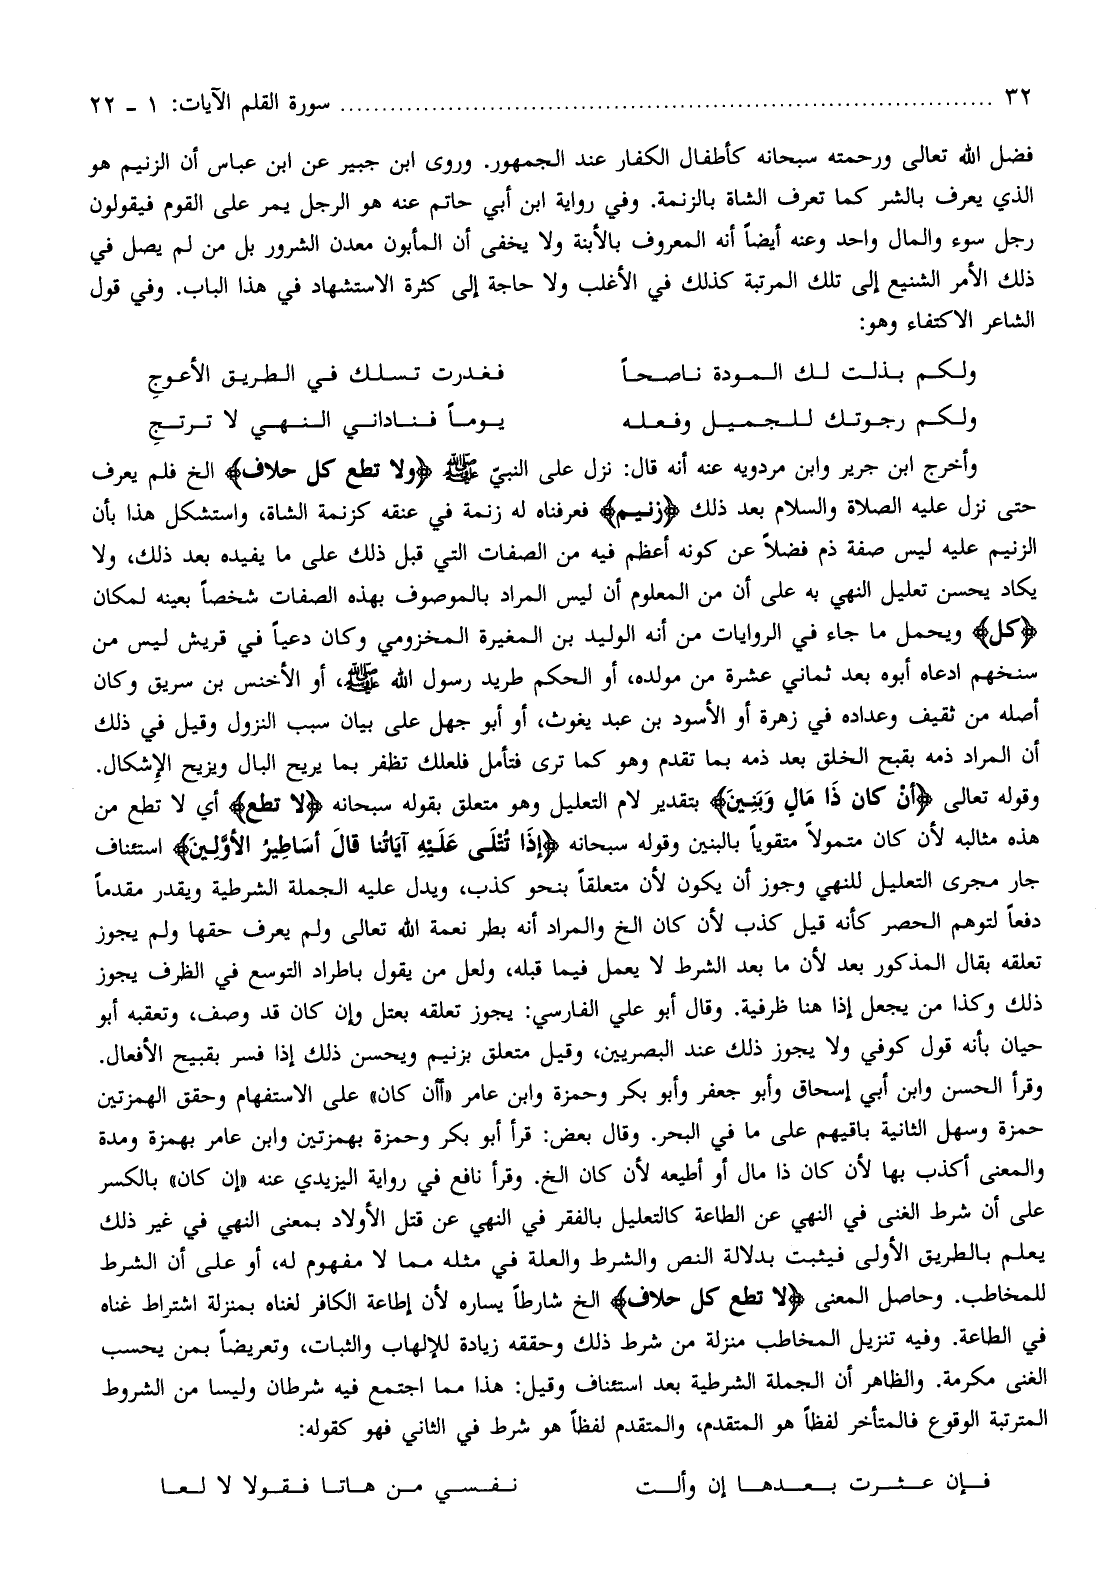 ٣٢ ........................................................................................ سورة القلم الآيات: ١ ـ ٢٢
فضل الله تعالى ورحمته سبحانه كأطفال الكفار عند الجمهور. وروى ابن جبير عن ابن عباس أن الزنيم هو
الذي يعرف بالشر كما تعرف الشاة بالزنمة. وفي رواية ابن أبي حاتم عنه هو الرجل يمر على القوم فيقولون
رجل سوء والمال واحد وعنه أيضاً أنه المعروف بالأبنة ولا يخفى أن المأبون معدن الشرور بل من لم يصل في
ذلك الأمر الشنيع إلى تلك المرتبة كذلك في الأغلب ولا حاجة إلى كثرة الاستشهاد في هذا الباب. وفي قول
الشاعر الاكتفاء وهو:
ولكم بذلت لك المودة ناصحاً فغدرت تسلك في الطريق الأعوجِ
ولكم رجوتك للجميل وفعله يوماً فناداني النهي لا ترتجِ
وأخرج ابن جرير وابن مردويه عنه أنه قال: نزل على النبيّ ﷺ ﴿ولا تطع كل حلاف﴾ الخ فلم يعرف
حتى نزل عليه الصلاة والسلام بعد ذلك ﴿زنيم﴾ فعرفناه له زنمة في عنقه كزنمة الشاة، واستشكل هذا بأن
الزنيم عليه ليس صفة ذم فضلاً عن كونه أعظم فيه من الصفات التي قبل ذلك على ما يفيده بعد ذلك، ولا
يكاد يحسن تعليل النهي به على أن من المعلوم أن ليس المراد بالموصوف بهذه الصفات شخصاً بعينه لمكان
﴿كل﴾ ويحمل ما جاء في الروايات من أنه الوليد بن المغيرة المخزومي وكان دعياً في قريش ليس من
سنخهم ادعاه أبوه بعد ثماني عشرة من مولده، أو الحكم طريد رسول الله ﷺ، أو الأخنس بن سريق وكان
أصله من ثقيف وعداده في زهرة أو الأسود بن عبد يغوث، أو أبو جهل على بيان سبب النزول وقيل في ذلك
أن المراد ذمه بقبح الخلق بعد ذمه بما تقدم وهو كما ترى فتأمل فلعلك تظفر بما يريح البال ويزيح الإشكال.
وقوله تعالى ﴿أنْ كان ذَا مالٍ وَبَنِينَ﴾ بتقدير لام التعليل وهو متعلق بقوله سبحانه ﴿لا تطع﴾ أي لا تطع من
هذه مثالبه لأن كان متمولاً متقوياً بالبنين وقوله سبحانه ﴿إذَا تُتْلَى عَلَيْهِ آيَاتُنا قالَ أسَاطِيرُ الأوَّلِينَ﴾ استئناف
جار مجرى التعليل للنهي وجوز أن يكون لأن متعلقاً بنحو كذب، ويدل عليه الجملة الشرطية ويقدر مقدماً
دفعاً لتوهم الحصر كأنه قيل كذب لأن كان الخ والمراد أنه بطر نعمة الله تعالى ولم يعرف حقها ولم يجوز
تعلقه بقال المذكور بعد لأن ما بعد الشرط لا يعمل فيما قبله، ولعل من يقول باطراد التوسع في الظرف يجوز
ذلك وكذا من يجعل إذا هنا ظرفية. وقال أبو علي الفارسي: يجوز تعلقه بعتل وإن كان قد وصف، وتعقبه أبو
حيان بأنه قول كوفي ولا يجوز ذلك عند البصريين، وقيل متعلق بزنيم ويحسن ذلك إذا فسر بقبيح الأفعال.
وقرأ الحسن وابن أبي إسحاق وأبو جعفر وأبو بكر وحمزة وابن عامر «أأن كان» على الاستفهام وحقق الهمزتين
حمزة وسهل الثانية باقيهم على ما في البحر. وقال بعض: قرأ أبو بكر وحمزة بهمزتين وابن عامر بهمزة ومدة
والمعنى أكذب بها لأن كان ذا مال أو أطيعه لأن كان الخ. وقرأ نافع في رواية اليزيدي عنه «إن كان» بالكسر
على أن شرط الغنى في النهي عن الطاعة كالتعليل بالفقر في النهي عن قتل الأولاد بمعنى النهي في غير ذلك
يعلم بالطريق الأولى فيثبت بدلالة النص والشرط والعلة في مثله مما لا مفهوم له، أو على أن الشرط
للمخاطب. وحاصل المعنى ﴿لا تطع كل حلاف﴾ الخ شارطاً يساره لأن إطاعة الكافر لغناه بمنزلة اشتراط غناه
في الطاعة. وفيه تنزيل المخاطب منزلة من شرط ذلك وحققه زيادة للإلهاب والثبات، وتعريضاً بمن يحسب
الغنى مكرمة. والظاهر أن الجملة الشرطية بعد استئناف وقيل: هذا مما اجتمع فيه شرطان وليسا من الشروط
المترتبة الوقوع فالمتأخر لفظاً هو المتقدم، والمتقدم لفظاً هو شرط في الثاني فهو كقوله:
فإن عثرت بعدها إن وألت نفسي من هاتا فقولا لا لعا